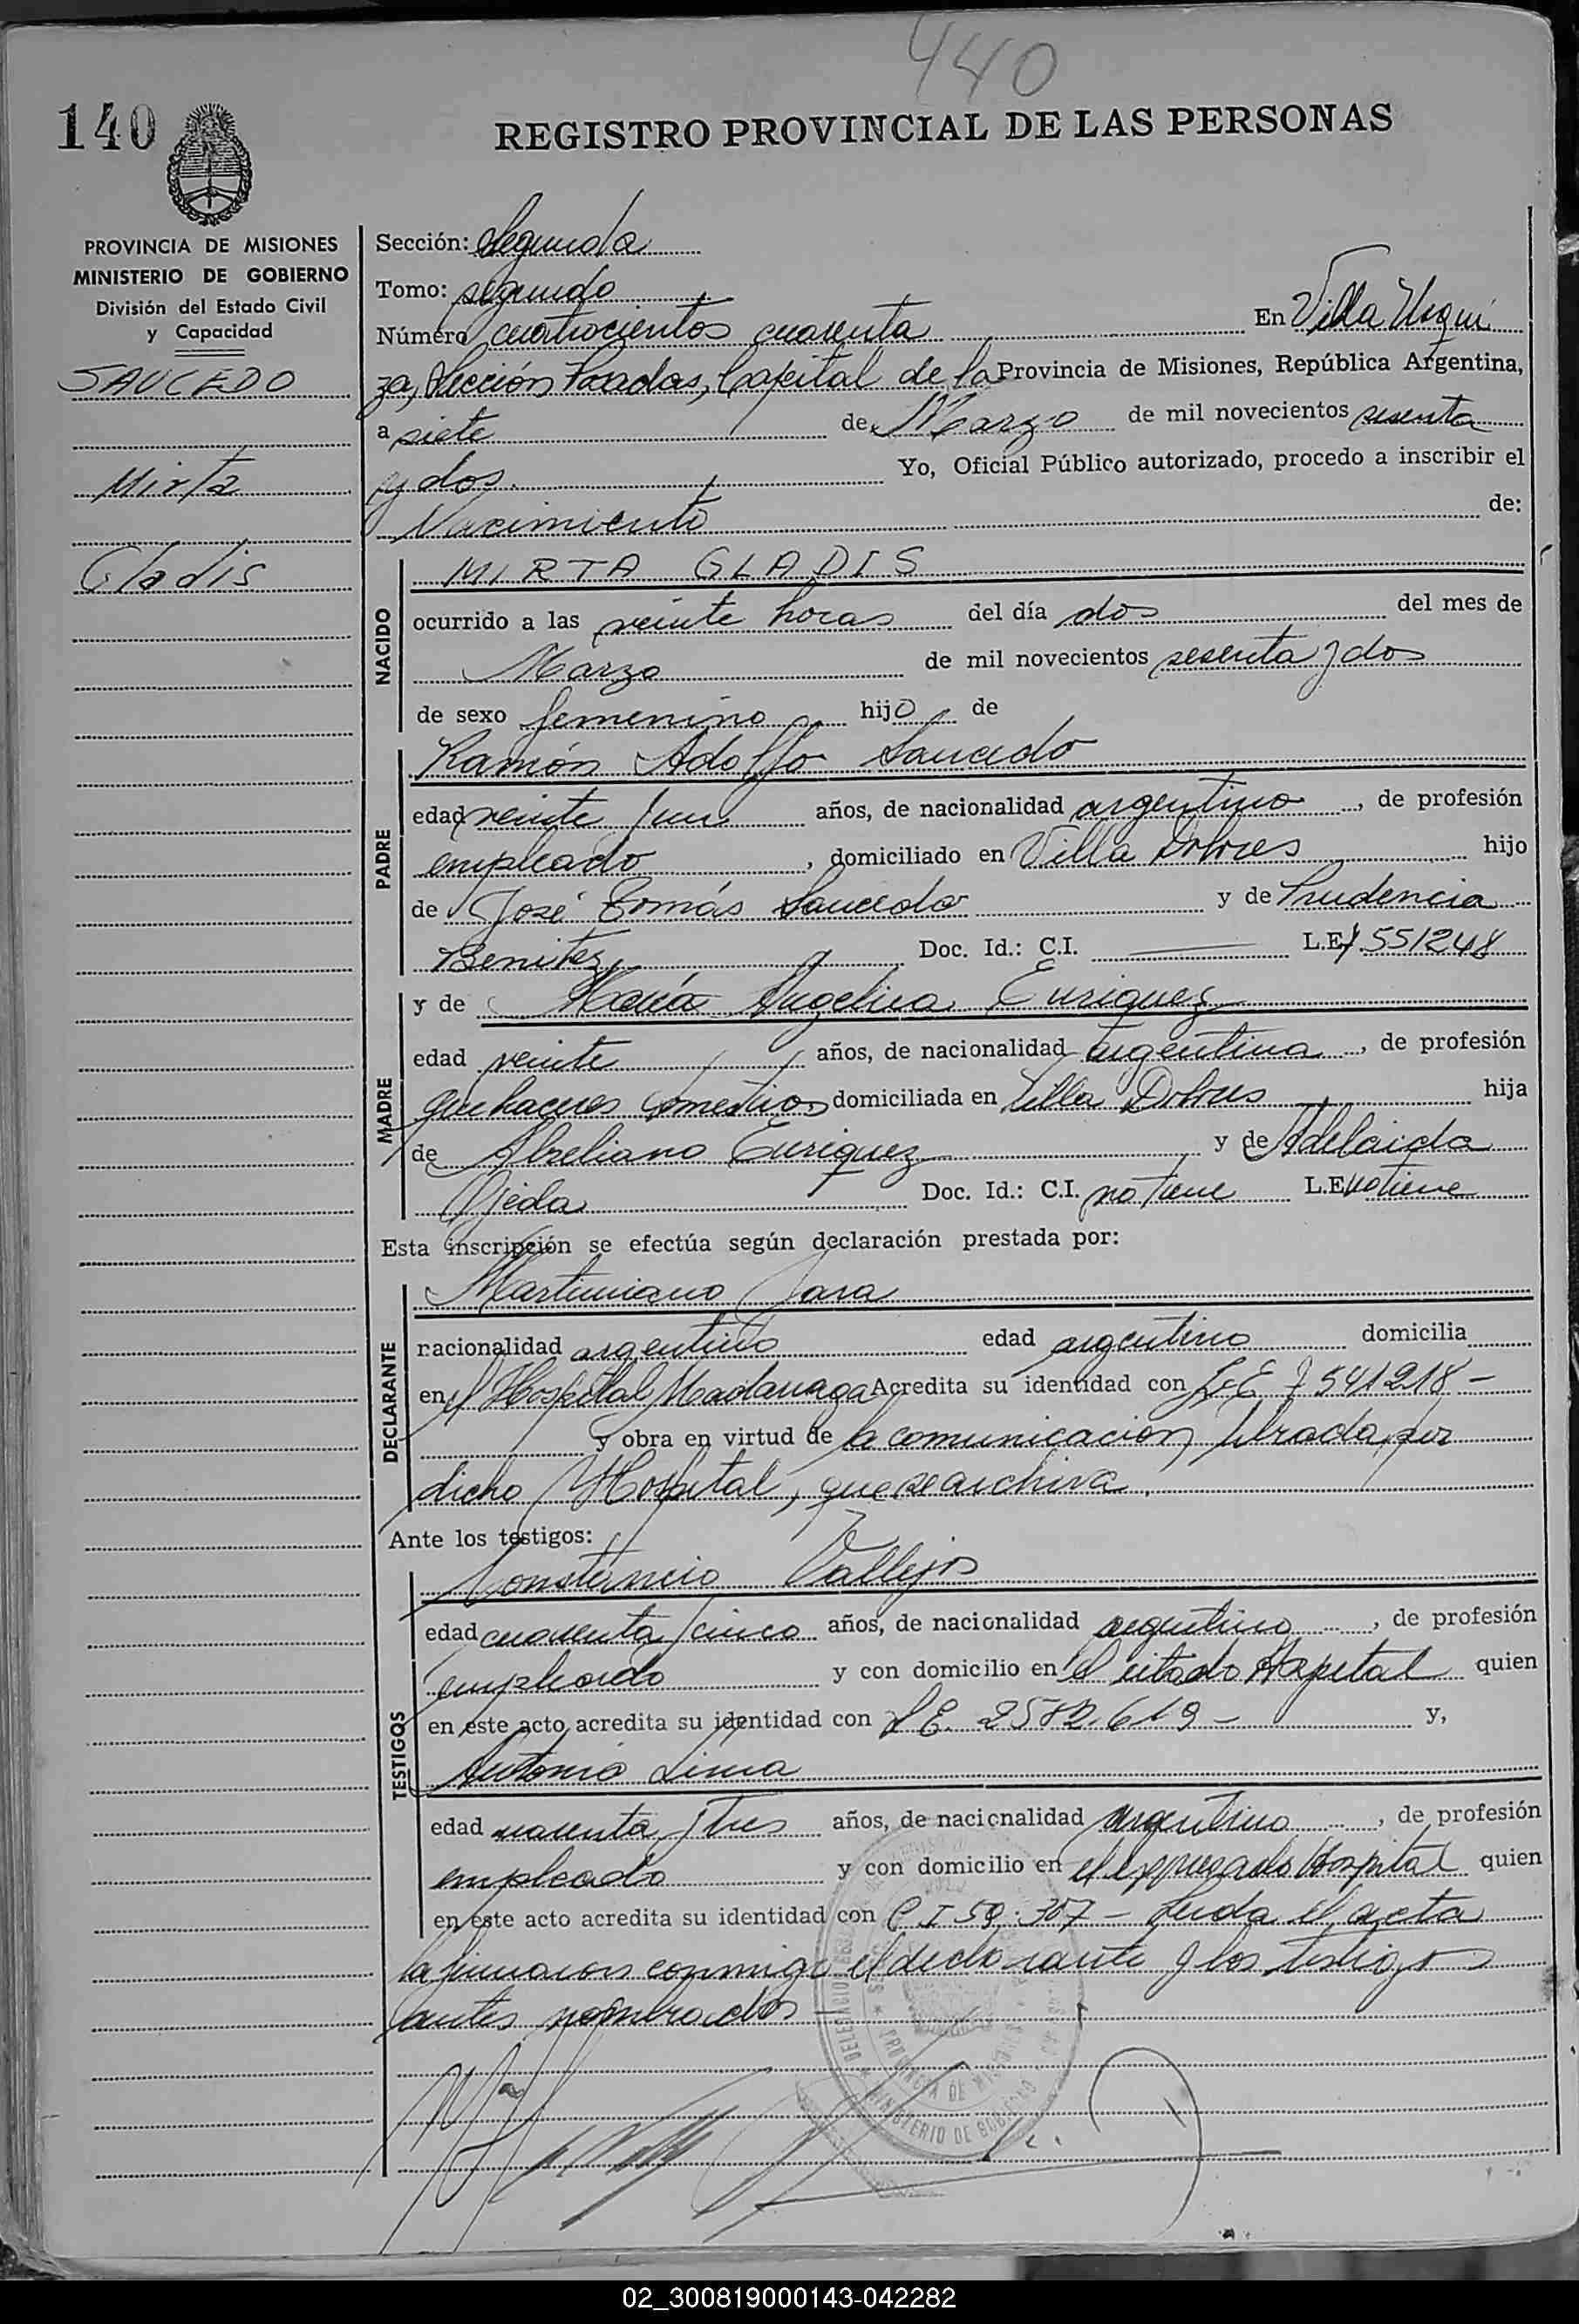 440
140
REGISTRO PROVINCIAL DE LAS PERSONAS
PROVINCIA DE MISIONES
MINISTERIO DE GOBIERNO
División del Estado Civil
y Capacidad
SAUCEDO
Mirta
Gladis
Sección: Segunda
Tomo: segundo
Número cuatrocientos cuarenta En Villa Urqui
za, Sección Posadas, Capital de la Provincia de Misiones, República Argentina,
a siete de Marzo de mil novecientos sesenta
y dos. Yo, Oficial Público autorizado, procedo a inscribir el
Nacimiento de:
NACIDO
MIRTA GLADIS
ocurrido a las veinte horas del día dos del mes de
Marzo de mil novecientos sesenta y dos
de sexo femenino hijo de
PADRE
Ramón Adolfo Saucedo
edad veinte y un años, de nacionalidad argentino, de profesión
empleado, domiciliado en Villa Dolores hijo
de José Tomás Saucedo y de Prudencia
Benitez Doc. Id.: C.I. L.E. 7.551248
MADRE
y de María Angelica Enriquez
edad veinte años, de nacionalidad argentina, de profesión
quehaceres domésticos domiciliada en Villa Dolores hija
de Enriquez y de Adelaida
Ojeda Doc. Id.: C.I. no tiene L.E. no tiene
Esta inscripción se efectúa según declaración prestada por:
DECLARANTE
Martiniano Jara
nacionalidad argentino edad argentino domicilia
en el Hospital Madariaga Acredita su identidad con L.E. 7541218-
y obra en virtud de la comunicación librada por
dicho Hospital, que se archiva.
Ante los testigos:
TESTIGOS
Constancio Vallejos
edad cuarenta y cinco años, de nacionalidad argentino, de profesión
empleado y con domicilio en el citado Hospital quien
en este acto acredita su identidad con L.E. 2582.619- y,
Antonio Lima
edad cuarenta y tres años, de nacionalidad argentino, de profesión
empleado y con domicilio en el expresado Hospital quien
en este acto acredita su identidad con C I 59.307- Leida el acta
la firmaron conmigo el declarante y los testigos
antes nombrados
PROVINCIA DE MISIONES
MINISTERIO DE GOBIERNO
02_300819000143-042282